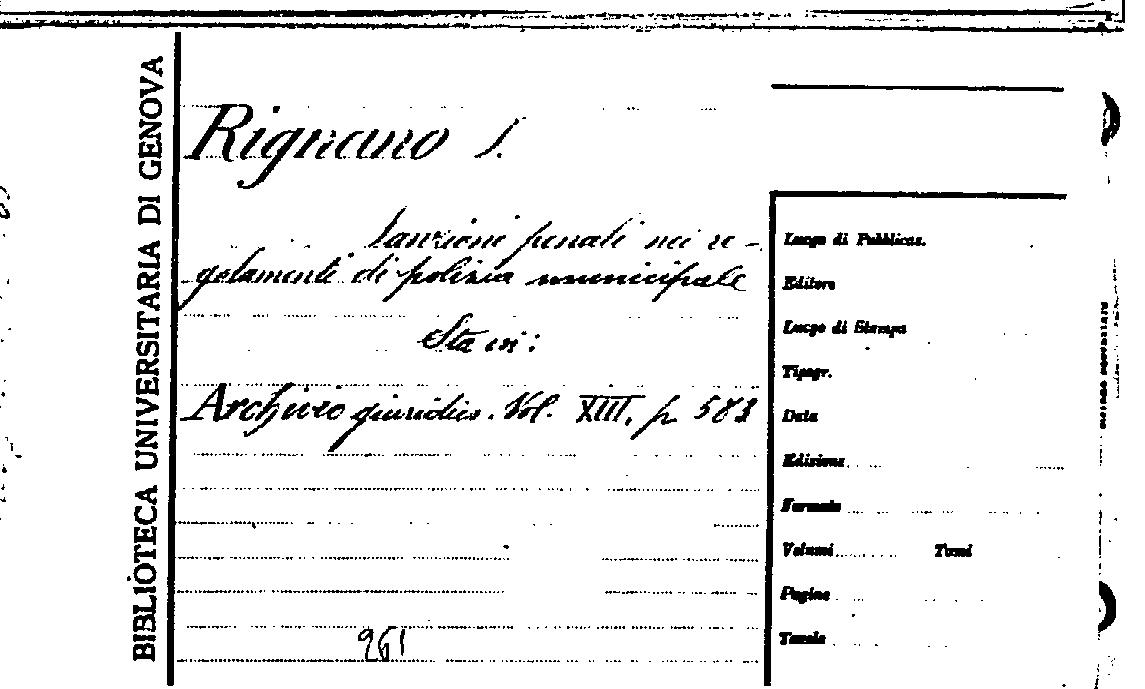 BIBLIOTECA UNIVERSITARIA DI GENOVA
Rignano I.
Sanzioni penali nei re-
golamenti di polizia municipale
Sta in:
Archivio giuridico. Vol. XIII. p. 583
961
Luogo di Pubblicaz.
Editore
Luogo di Stampa
Tipogr.
Data
Edizione
Formato
Volumi Tomi
Pagine
Tavole